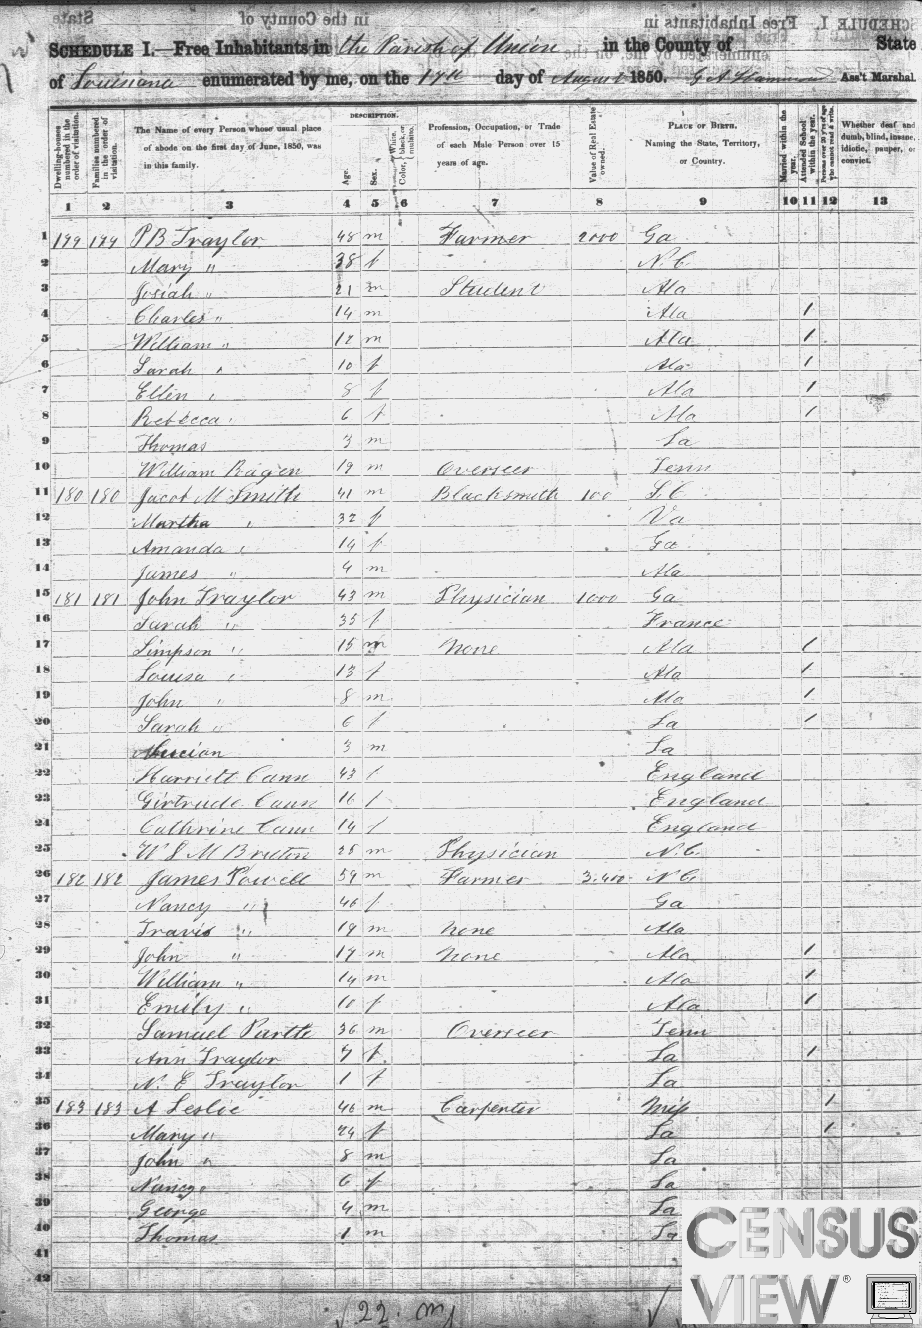 SCHEDULE I.—Free Inhabitants in the Parish of Union in the County of State
of Louisiana enumerated by me, on the 17th day of August 1850. Ass't Marshal.
Dwelling-houses numbered in the order of visitation.
Families numbered in the order of visitation.
The Name of every Person whose usual place of abode on the first day of June, 1850, was in this family.
DESCRIPTION.
Age.
Sex.
Color, White, black, or mulatto.
Profession, Occupation, or Trade of each Male Person over 15 years of age.
Value of Real Estate owned.
PLACE OF BIRTH, Naming the State, Territory, or Country.
Married within the year.
Attended School within the year.
Persons over 20 y'rs of age who cannot read & write.
Whether deaf and dumb, blind, insane, idiotic, pauper, or convict.
1 2 3 4 5 6 7 8 9 10 11 12 13
1 179 179 P B Traylor 48 m Farmer 2000 Ga
2 Mary " 38 f N.C.
3 Josiah " 21 m Student Ala
4 Charles " 14 m Ala /
5 William " 12 m Ala /
6 Sarah " 10 f Ala /
7 Ellen " 8 f Ala /
8 Rebecca " 6 f Ala /
9 Thomas 3 m La
10 William Ragen 19 m Overseer Tenn
11 180 180 Jacob M Smith 41 m Blacksmith 100 S.C.
12 Martha " 32 f Va
13 Amanda " 14 f Ga
14 James " 4 m Ala
15 181 181 John Traylor 43 m Physician 1000 Ga
16 Sarah " 35 f France
17 Simpson " 15 m None Ala /
18 Louisa " 13 f Ala /
19 John " 8 m Ala /
20 Sarah " 6 f La /
21 3 m La
22 Harriett Cann 43 f England
23 Girtrude Cann 16 f England
24 Cathrine Cann 14 f England
25 W S M Bruton 28 m Physician N.C.
26 182 182 James Powell 59 m Farmer 3.400 N.C.
27 Nancy " 46 f Ga
28 Travis " 19 m None Ala
29 John " 17 m None Ala /
30 William " 14 m Ala /
31 Emily " 10 f Ala /
32 Samuel 36 m Overseer Tenn
33 Ann Traylor 7 f La /
34 N. E Traylor 1 f La
35 183 183 A Leslie 46 m Carpenter Miss /
36 Mary " 24 f La /
37 John " 8 m La
38 Nancy " 6 f La
39 George 4 m La
40 Thomas 1 m La
41
42
22. m
CENSUS
VIEW ®